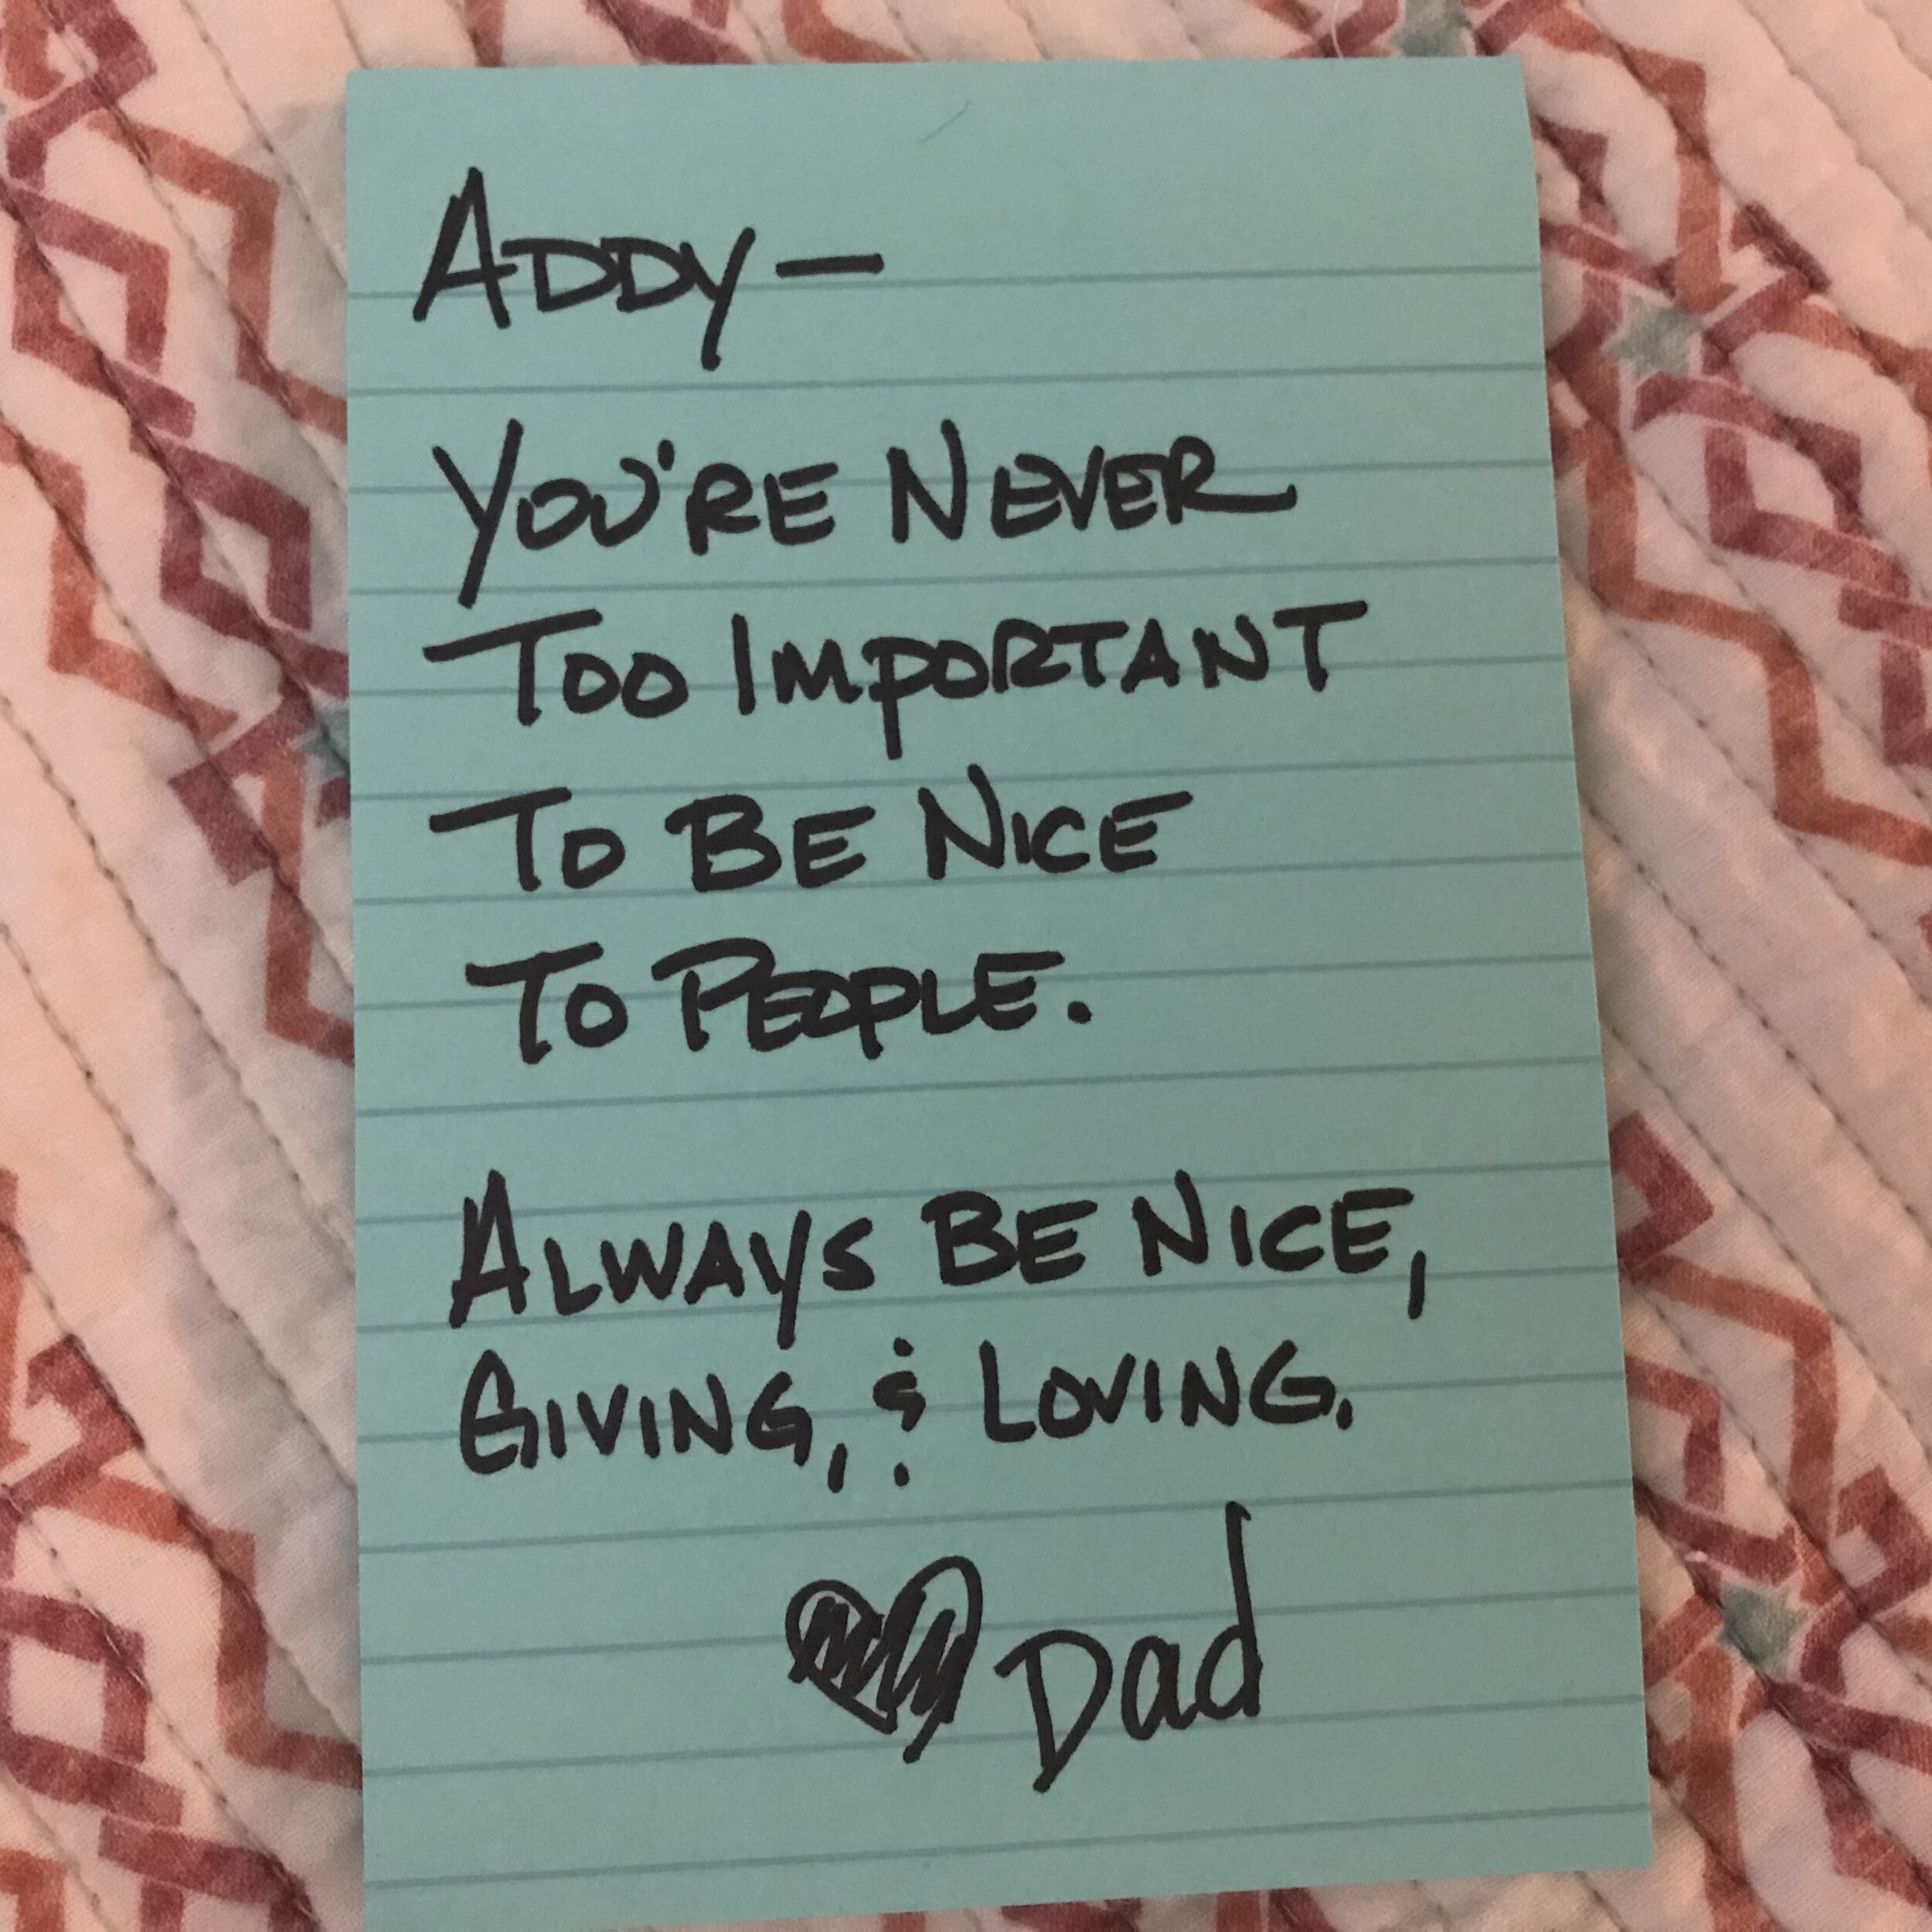 ADDY—
YOU'RE NEVER
TOO IMPORTANT
TO BE NICE
TO PEOPLE.
ALWAYS BE NICE,
GIVING, & LOVING.
♥ Dad